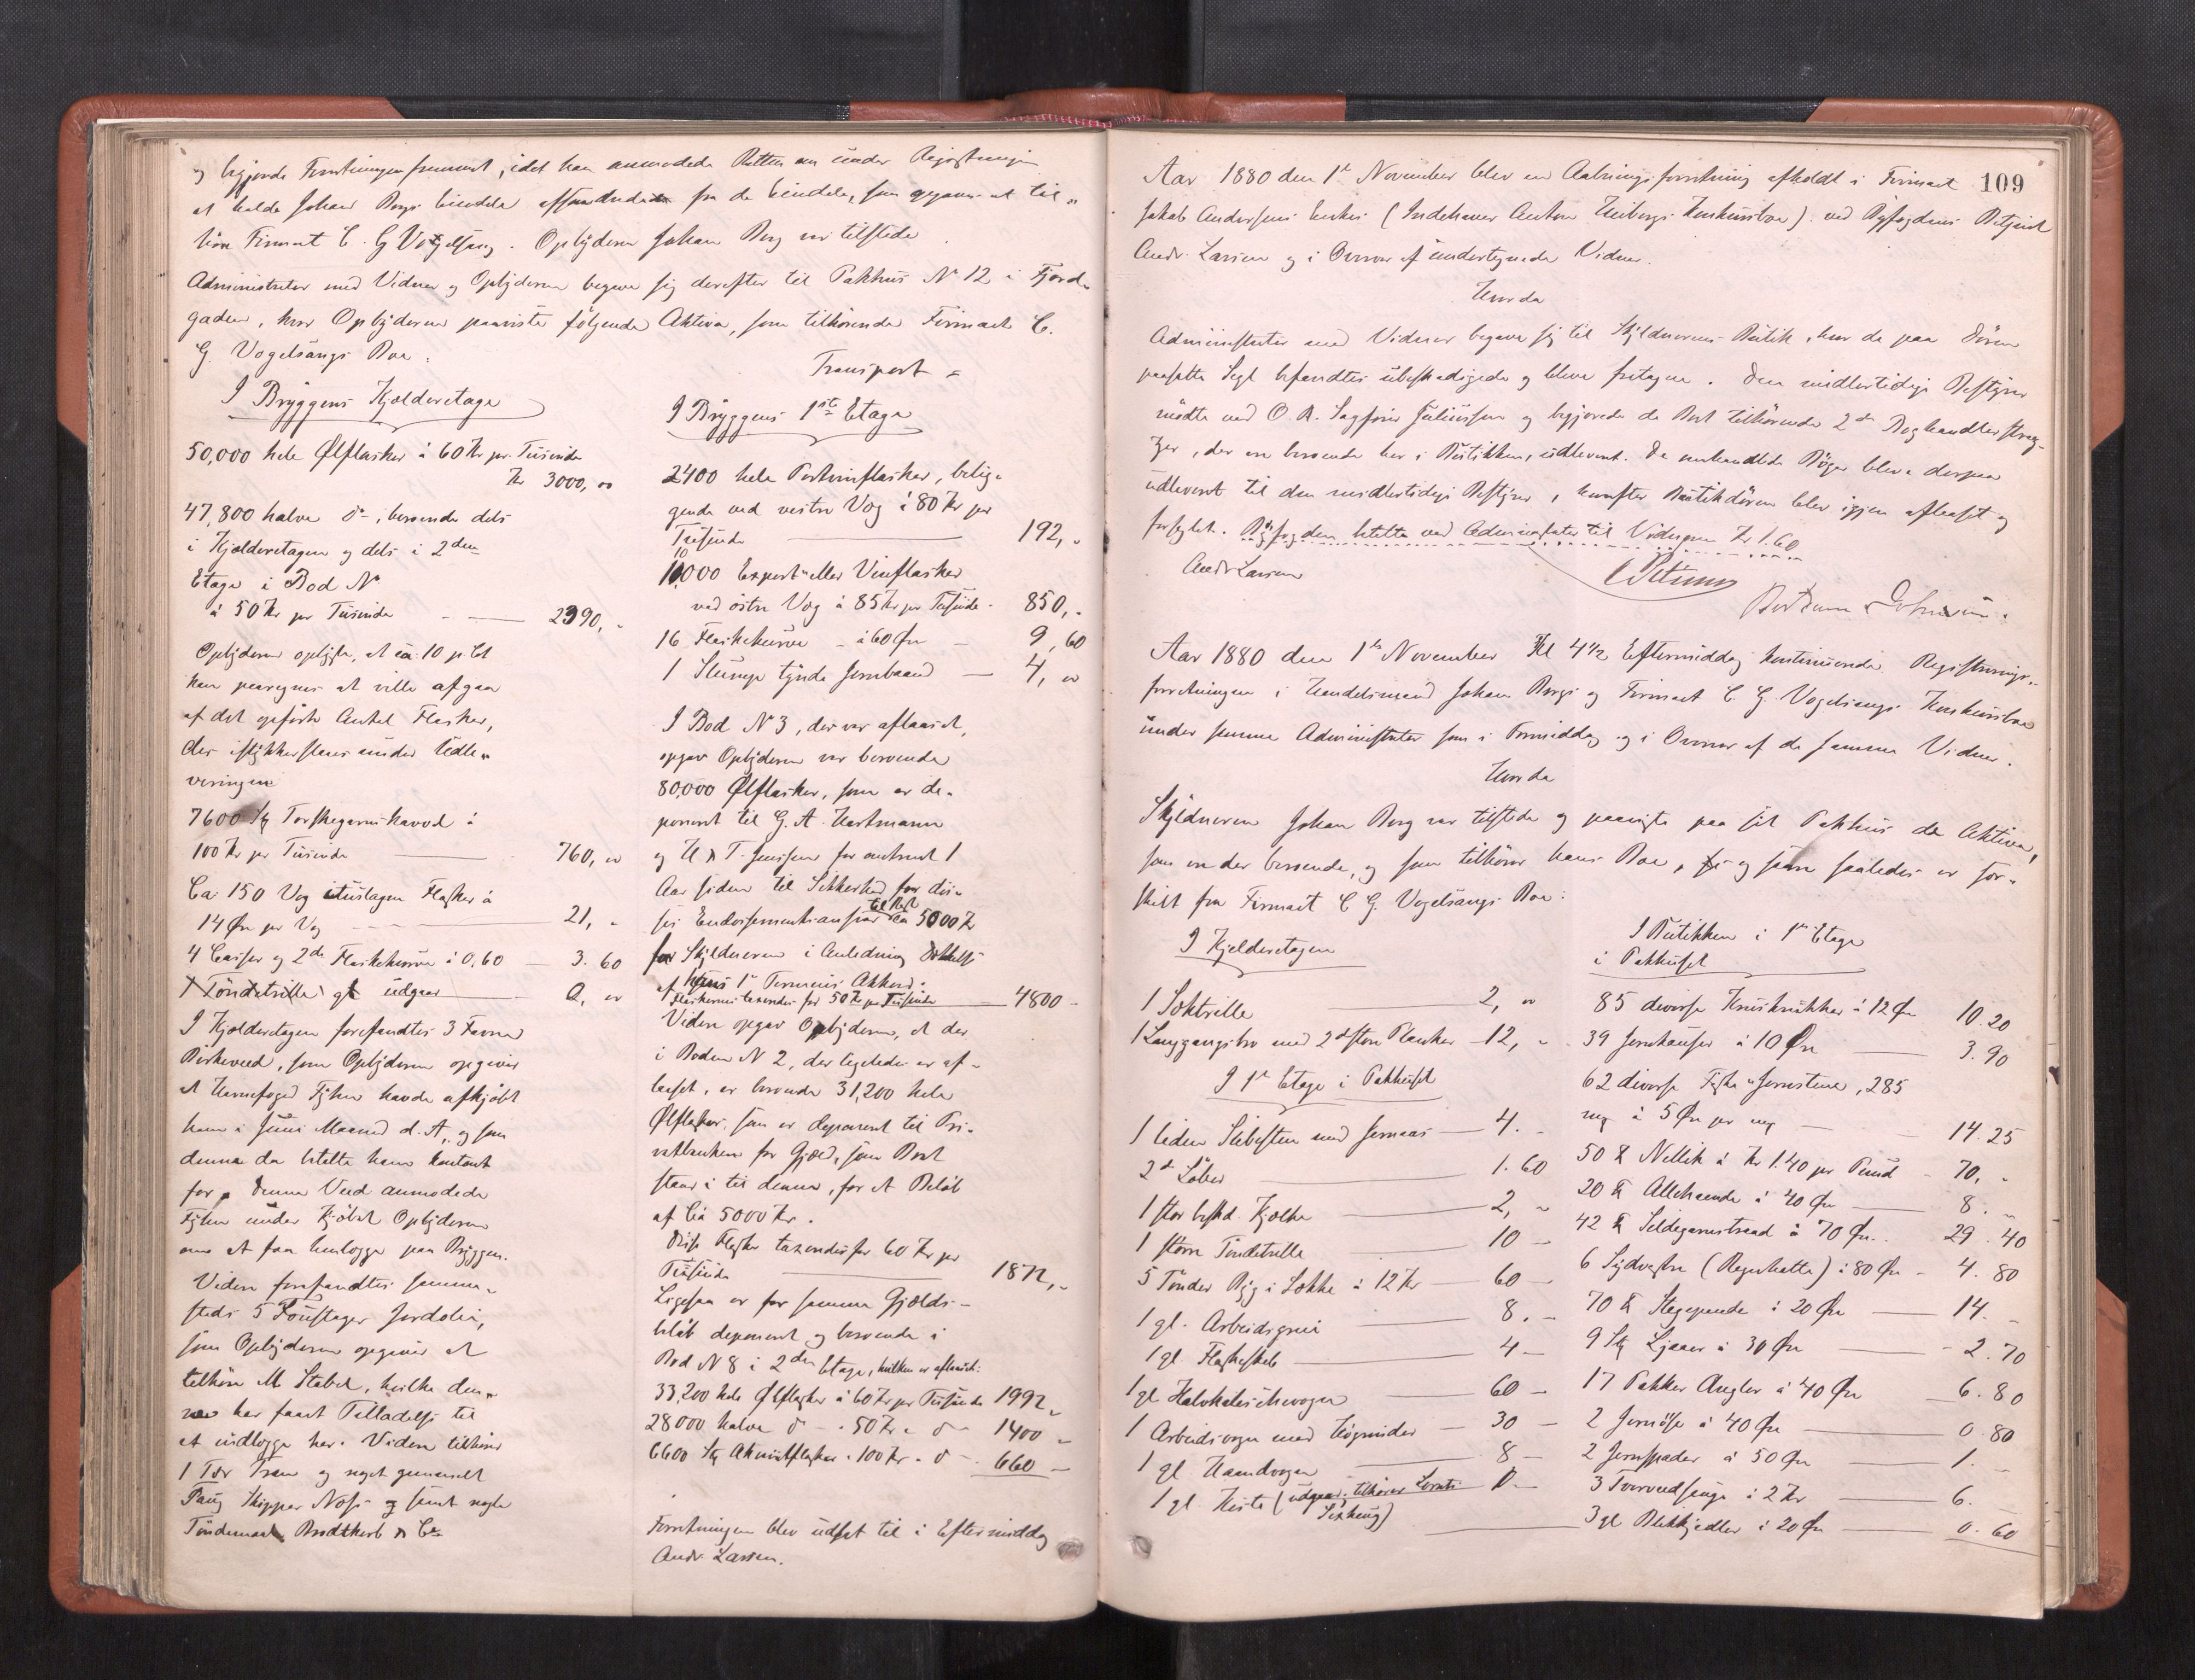 og begjærede Forretningen fremmet, idet han anmodede Retten om under Registreringen
at holde Johan Bergs Eiendele affondrede fra de Eiendele, som opgaves at til-
høre Firmaet C. G Vogelsang. Opbyderen Johan Berg var tilstede
Administrator med Vidner og Opbyderen begave sig derefter til Pakhus No 12 i Fjord-
gaden, hvor Opbyderen paaviste følgende Aktiva, som tilhørende Firmaet C.
G. Vogelsangs Boe:
I Bryggens Kjelderetage
50,000 hele Ølflasker à 60 Kr pr. Tusinde
Kr 3000, "
47,800 halve do, beroende dels
i Kjelderetagen og dels i 2den
Etage i Bod No
à 50 Kr pr Tusinde — 2390, "
Opbyderen oplyste, at ca. 10 pCt
kan paaregnes at ville afgaa
af det opførte Antal Flasker,
der istykkerslaaes under Udle-
veringen
7600 Stk Torskegarnskavel à
100 Kr pr Tusinde — 760, "
Ca 150 Vog ituslagne Flasker à
14 Øre pr Vog — 21, "
4 Casser og 2 do Flaskekurve à 0,60 — 3. 60
1 Tøndetrille gl udgaar — 0, "
I Kjelderetagen forefandtes 3 Favne
Birkeved, som Opbyderen opgiver
at Havnefoged Fyhn havde afkjøbt
ham i Juni Maaned d. A, og som
denne da betalte ham kontant
for. Denne Ved anmodede
Fyhn under Kjøbet Opbyderen
om at faa henlægge paa Bryggen.
Videre forefandtes samme-
steds 5 Foustager Jordolie,
som Opbyderen opgiver at
tilhøre M. Stabel, hvilke den-
ne har faaet Tilladelse til
at indlægge her. Videre tilhører
1 Tdr Tran og noget gammelt
Taug Skipper Noss og samt nogle
Tøndemaal Brødtkorb & Co
Transport =
I Bryggens 1ste Etage
2400 hele Portvinflasker, belig-
gende ved vestre Væg à 80 Kr per
Tusinde — 192, "
10000 Export eller Vinflasker
ved østre Væg à 85 Kr pr Tusinde - 850, "
16 Flaskekurve - à 60 Øre — 9, 60
1 Slump tynde Jernbaand — 4, "
I Bod No 3, der var aflaaset,
opgav Opbyderen var beroende
80,000 Ølflasker, som er de-
poneret til G. A. Hartmann
og H & T. Jenssen for omtrent 1
Aar siden til Sikkerhed for dis-
ses Endossementsansvar til Rest ca 5000 Kr
for Skyldneren i Anledning
af hans 1ste Termins Akkord.
Flaskerne taxeredes for 50 Kr pr Tusinde — 4800 -
Videre opgav Opbyderen, at der
i Boden No 2, der ligeledes er af-
laaset, er beroende 31,200 hele
Ølflasker, som er deponeret til Pri-
vatbanken for Gjæld, som Boet
staar i til denne, for et Beløb
af Ca 5000 Kr.
Disse Flasker taxeredes for 60 Kr per
Tusinde — 1872, "
Ligesaa er for samme Gjælds-
beløb deponeret og beroende i
Bod No 8 i 2den Etage, hvilken er aflaaset:
33,200 hele Ølflasker à 60 Kr pr Tusinde 1992 "
28000 halve do - - 50 Kr - do - 1400 "
6600 Stk Akvavitflasker - 100 Kr - do - 660 -
Forretningen blev udsat til i Eftermiddag
Andr. Larsen.
109
Aar 1880 den 1ste November blev en Aabningsforretning afholdt i Firmaet
Jakob Andersens Enkes (Indehaver Anton Huibergs Konkursboe) ved Byfogdens Betjent
Andr. Larsen og i Overvær af undertegnede Vidner.
Hvorda
Administrator med Vidner begave sig til Skyldnerens Butik, hvor de paa Døren
paasatte Segl befandtes ubeskadigede og bleve fratagne. Den midlertidige Bestyrer
mødte ved O. R. Sagfører Juliussen og begjærede de Boet tilhørende 2de Boghandlerstraz-
zer, der ere beroende her i Butikken, udleveret. De omhandlede Bøger bleve derpaa
udleveret til den midlertidige Bestyrer, hvorefter Butikdøren blev igjen aflaaset og
forseglet. Byfogden betalte ved Administrator til Vidnerne Kr 1.60
Andr Larsen
Aar 1880 den 1ste November Kl 4½ Eftermiddag kontinueredes Registrerings-
forretningen i Handelsmand Johan Bergs og Firmaet C. G. Vogelsangs Konkursboe
under samme Administrator som i Formiddag og i Overvær af de samme Vidner.
Hvorda
Skyldneren Johan Berg var tilstede og paaviste paa sit Pakhus de Aktiva,
som ere der beroende, og som tilhører hans Boe, og som saaledes er for-
skilt fra Firmaet C. G. Vogelsangs Boe:
I Kjelderetagen
1 Soktrille — 2, "
1 Langgangsbro med 2 do store Planker — 12, "
I 1ste Etage i Pakhuset
1 liden Slibesten med Jernaas — 4. -
2 do Løbere — 1. 60
1 stor beskd. Kjelke — 2, "
1 større Tøndetrille — 10 -
5 Tønder Byg i Sække à 12 Kr — 60 -
1 gl. Arbeidsgreie — 8. -
1 gl. Flaskeskab — 4 -
1 gl Halvkaleschevogn — 60 -
1 Arbeidsvogn med Høgrinder — 30 -
1 gl. Haandvogn — 8 -
1 gl. Kiste (udgaar, tilhører Lorents
Sexhaug) — 0 -
I Butikken i 1ste Etage
i Pakhuset
85 diverse Kruskrukker à 12 Øre 10.20
39 Jernkauser à 10 Øre — 3.90
62 diverse Fiske Jernstene, 285
mg à 5 Øre pr mg — 14.25
50 ℔ Nellik à Kr 1.40 pr Pund - 70, "
20 ℔ Allehaande à 40 Øre — 8. "
42 ℔ Sildegarnstraad à 70 Øre.. 29. 40
6 Sydvester (Regnhatte) à 80 Øre - 4. 80
70 ℔ Stegepande à 20 Øre — 14. -
9 Stk Ljaaer à 30 Øre — 2.70
17 Pakker Angler à 40 Øre — 6. 80
2 Jernøse à 40 Øre — 0. 80
2 Jernspader à 50 Øre — 1. -
3 Tværvedsauge à 2 Kr — 6. -
3 gl Blikkjedler à 20 Øre — 0. 60